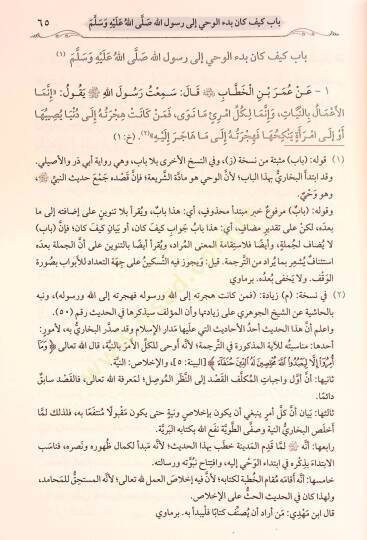 باب كيف كان بدء الوحي إلى رسول الله صَلَّى اللهُ عَلَيْهِ وَسَلَّمَ ٦٥
باب كيف كان بدء الوحي إلى رسول الله صَلَّى اللهُ عَلَيْهِ وَسَلَّمَ (١)
١ - عَنْ عُمَرَ بْنِ الْخَطَّابِ ﷺ قَالَ: سَمِعْتُ رَسُولَ اللهِ ﷺ يَقُولُ: «إِنَّمَا
الأَعْمَالُ بِالنِّيَّاتِ، وَإِنَّمَا لِكُلِّ امْرِئٍ مَا نَوَى، فَمَنْ كَانَتْ هِجْرَتُهُ إِلَى دُنْيَا يُصِيبُهَا
أَوْ إِلَى امْرَأَةٍ يَنْكِحُهَا فَهِجْرَتُهُ إِلَى مَا هَاجَرَ إِلَيْهِ»(٢). (خ:١)
(١) قوله: (باب) مثبتة من نسخة (ز)، وفي النسخ الأخرى بلا باب، وهي رواية أبي ذر والأصيلي.
وقد ابتدأ البخاريُّ بهذا الباب؛ لأنَّ الوحي هو مادَّة الشَّريعة؛ فإنَّ قَصْده جَمْعَ حديث النبي ﷺ،
وهو وَحْيٌ.
وقوله: (بابٌ) مَرفوعٌ خبر مبتدأ محذوفٍ، أي: هذا بابٌ، ويُقرأ بلا تنوينٍ على إضافته إلى ما
بعده، لكنْ على تقدير مضافٍ، أي: هذا بابُ جوابِ كيف كان، أو بَيَانِ كيف كان؛ فإنَّ (باب)
لا يُضاف لجُملةٍ، وأيضًا فلاستِقامة المعنى المُراد، ويُقرأ أيضًا بالتنوين على أنَّ الجملة بعده
استئنافٌ يُشعِر بما يُراد من الترجمة. قيل: ويَجوز فيه التَّسكينُ على جِهَة التعداد للأبواب بصُورة
الوقف. ولا يَخفى بُعدُه. برماوي
(٢) في نسخة: (م) زيادة: (فمن كانت هجرته إلى الله ورسوله فهجرته إلى الله ورسوله)، ونبه
بالحاشية عن الشيخ الجوهري على زيادتها وأن المؤلف سيذكرها في الحديث رقم (٥٠).
واعلم أنَّ هذا الحديث أحدُ الأحاديث التي عليها مَدَار الإسلام وقد صدَّر البخاريُّ به، لأمورٍ:
أحدها: مناسبتُه للآية المذكورة في الترجمة؛ لأنَّه أوحى للكلِّ الأمرَ بالنيَّة، قال الله تعالى ﴿وَمَآ
أُمِرُوٓاْ إِلَّا لِيَعْبُدُواْ ٱللَّهَ مُخْلِصِينَ لَهُ ٱلدِّينَ حُنَفَآءَ﴾ [البينة: ٥]، والإخلاص: النيَّة.
ثانيها: أنَّ أوَّل واجباتِ المُكلَّف القَصْد إلى النَّظَر المُوصِل؛ لمَعرفة الله تعالى، فالقَصْد سابقٌ
دائمًا.
ثالثها: بيَان أنَّ كلَّ أمرٍ ينبغي أن يكون بإخلاصٍ ونيةٍ حتى يكون مَقْبولًا مُنتفَعًا به، فلذلك لمَّا
أخلَص البخاريُّ النية وصفَّى الطَّوِيَّة نفَع الله بكتابه البَرِيَّة.
رابعها: أنَّه ﷺ لمَّا قَدِم المَدينة خطَب بهذا الحديث؛ لأنَّه مَبدأٌ لكمال ظُهوره ونَصره، فناسَب
الابتداءَ بذِكْره في ابتداء الوَحْي إليه، وافتِتاح نبُوَّته ورسالته.
خامسها: أنَّه أقامَه مُقام الخُطبة لكتابه؛ لأنَّ فيه إخلاصَ العمل لله تعالى؛ لأنَّه المستحِقُّ للمحامد،
ولهذا كان في الحديث الحثُّ على الإخلاص.
قال ابن مَهْدِي: مَن أراد أن يُصنِّف كتابًا فليَبدأ به. برماوي